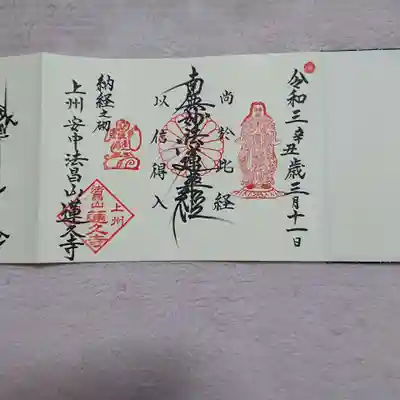 令和三辛丑歳三月十一日
尚於此経
南無妙法蓮華経
以信得入
納経之砌
上州安中法昌山蓮久寺
上州
法昌山
蓮久寺